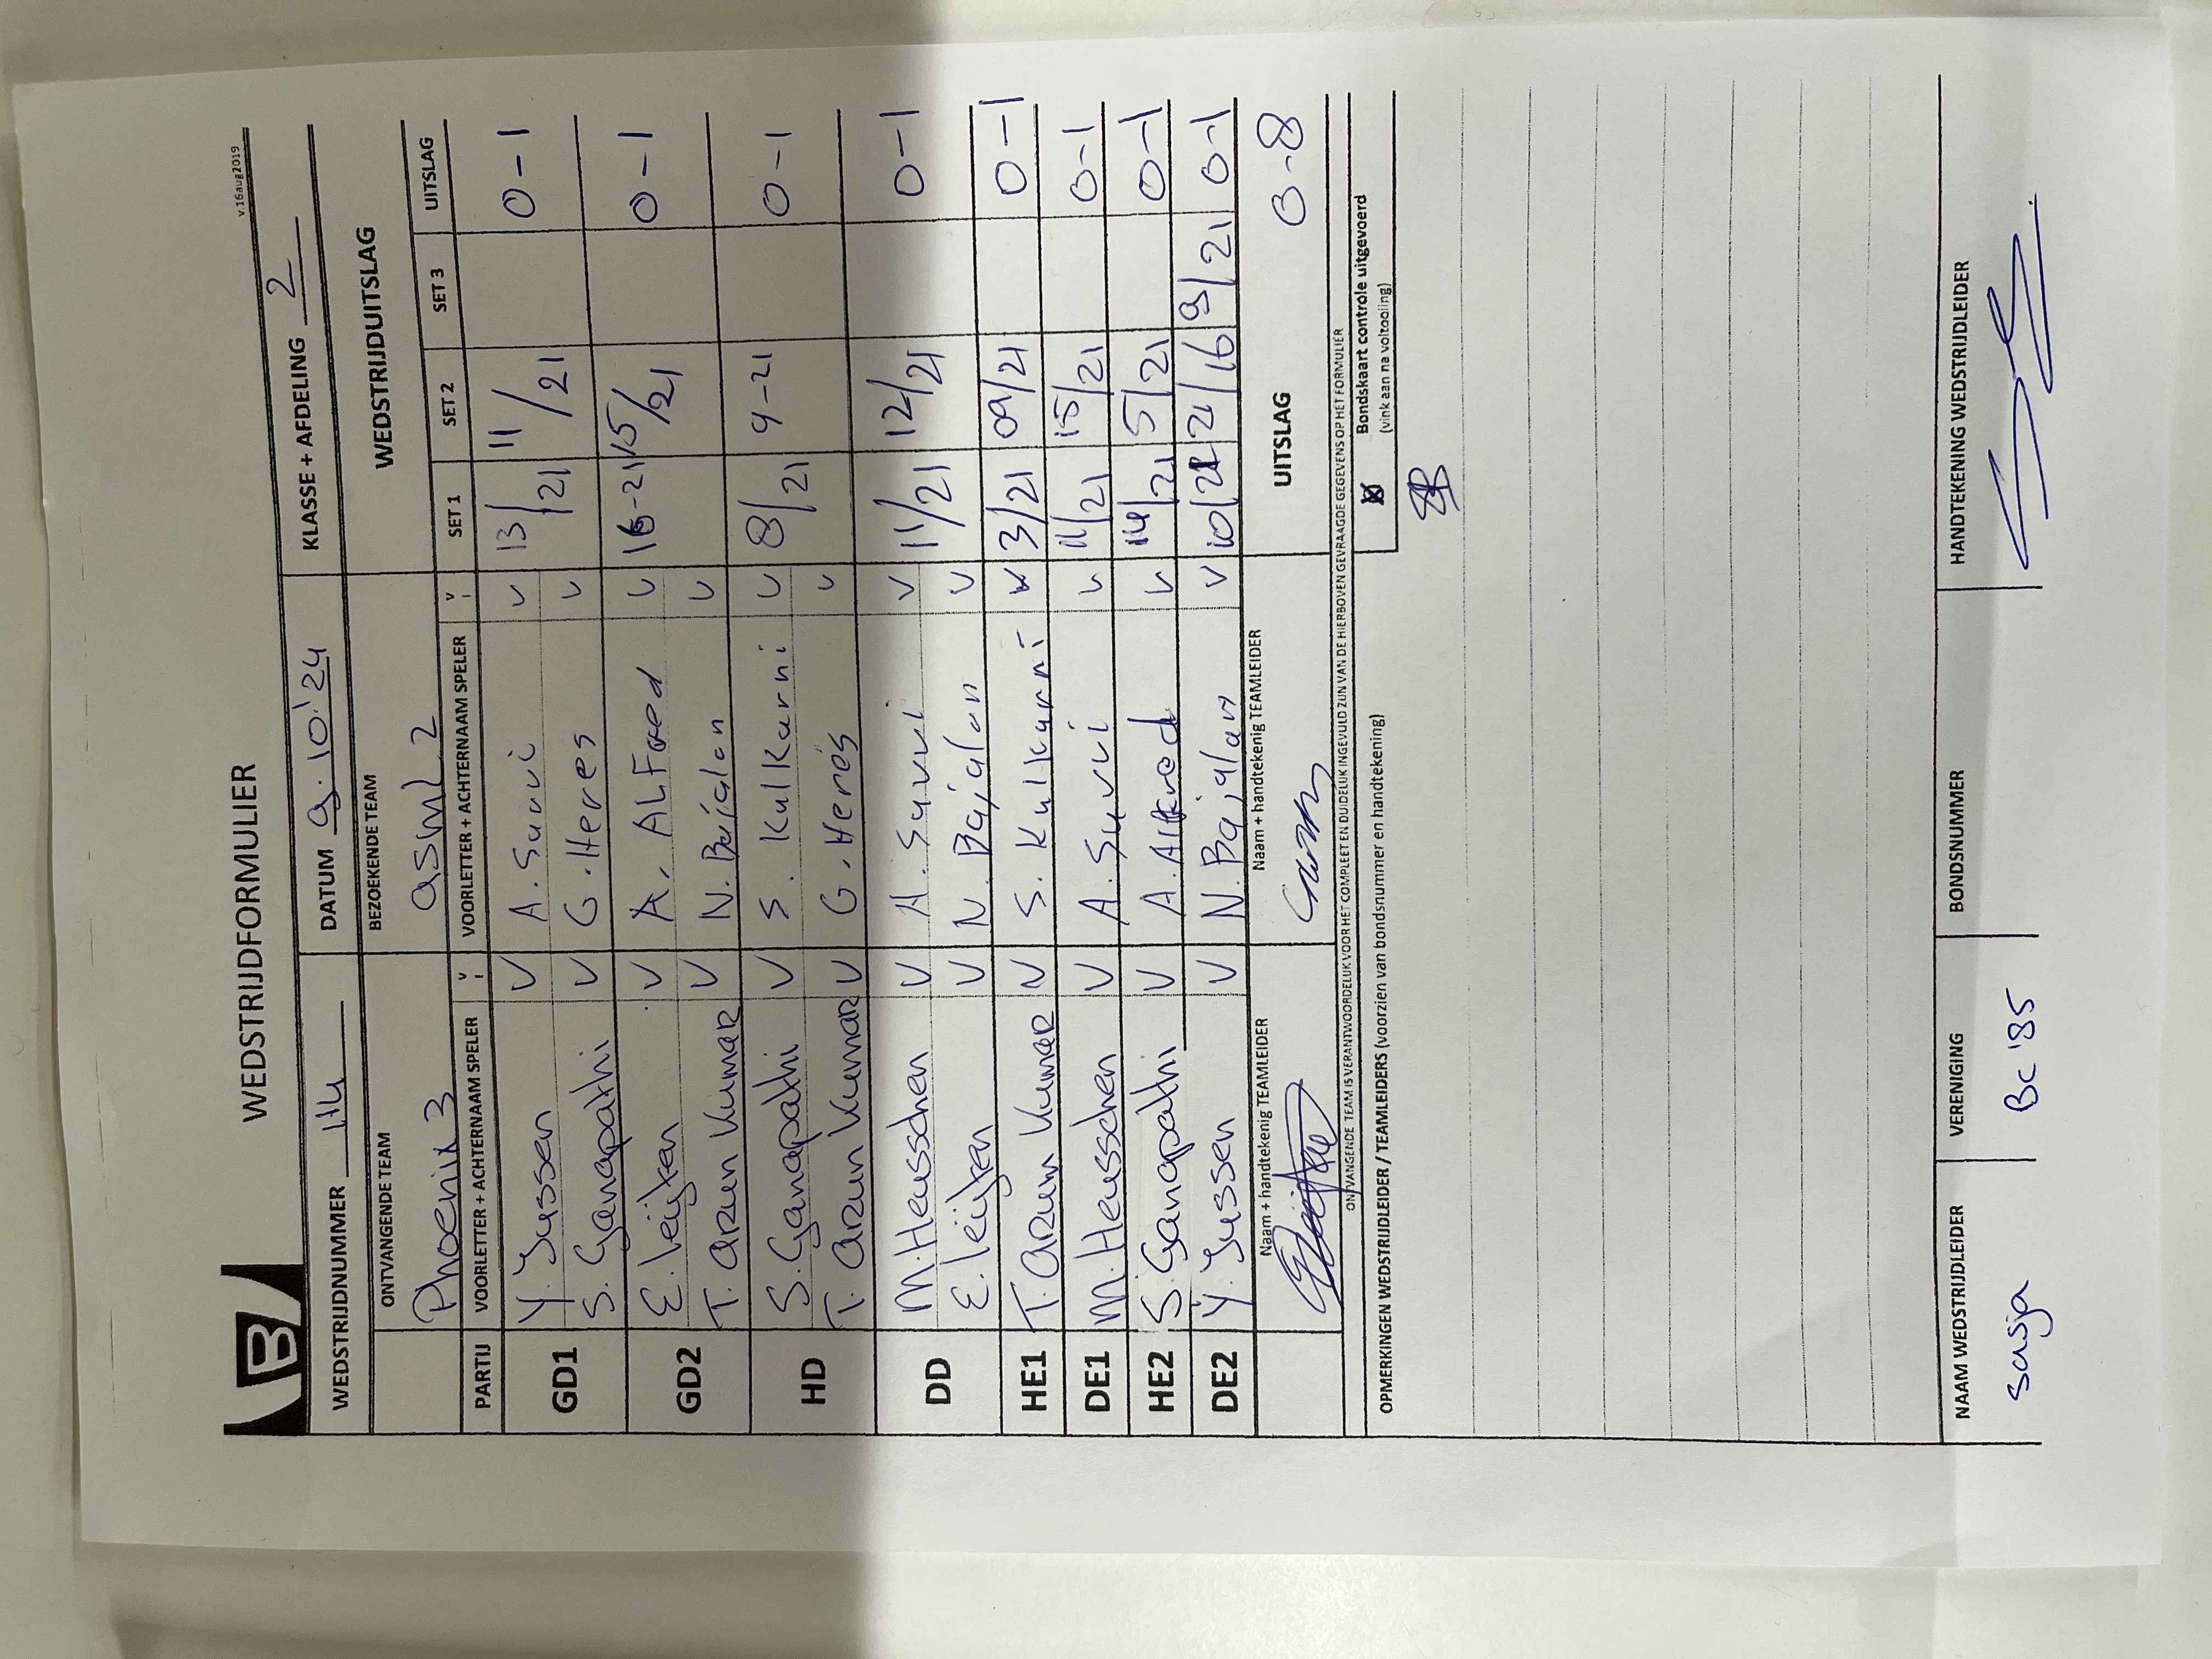 v.16aug2019
B
WEDSTRIJDFORMULIER
WEDSTRIJDNUMMER 114 DATUM 9.10.'24 KLASSE + AFDELING 2
ONTVANGENDE TEAM BEZOEKENDE TEAM WEDSTRIJDUITSLAG
Phoenix 3 asml 2
PARTIJ VOORLETTER + ACHTERNAAM SPELER V VOORLETTER + ACHTERNAAM SPELER V SET 1 SET 2 SET 3 UITSLAG
GD1 Y. Jussen V A. Survi V 13/21 11/21 0-1
S. Ganapathi V G. Heres V
GD2 E. Leijten V A. ALFred V 16-21 15/21 0-1
T. Arun Kumar V N. Bajglan V
HD S. Ganapathi V S. Kulkarni V 8/21 9-21 0-1
T. Arun Kumar V G. Heres V
DD M. Heusschen V A. Survi V 11/21 12/21 0-1
E. Leijten V N. Bajglan V
HE1 T. Arun Kumar V S. Kulkarni V 3/21 09/21 0-1
DE1 M. Heusschen V A. Survi V 11/21 15/21 0-1
HE2 S. Ganapathi V A. Alfred V 14/21 5/21 0-1
DE2 Y. Jussen V N. Bajglan V 10/21 21/16 9/21 0-1
Naam + handtekenig TEAMLEIDER Naam + handtekenig TEAMLEIDER UITSLAG 0-8
ONTVANGENDE TEAM IS VERANTWOORDELIJK VOOR HET COMPLEET EN DUIDELIJK INGEVULD ZIJN VAN DE HIERBOVEN GEVRAAGDE GEGEVENS OP HET FORMULIER
OPMERKINGEN WEDSTRIJDLEIDER / TEAMLEIDERS (voorzien van bondsnummer en handtekening)
Bondskaart controle uitgevoerd
(vink aan na voltooiing)
NAAM WEDSTRIJDLEIDER VERENIGING BONDSNUMMER HANDTEKENING WEDSTRIJDLEIDER
Sasja BC '85